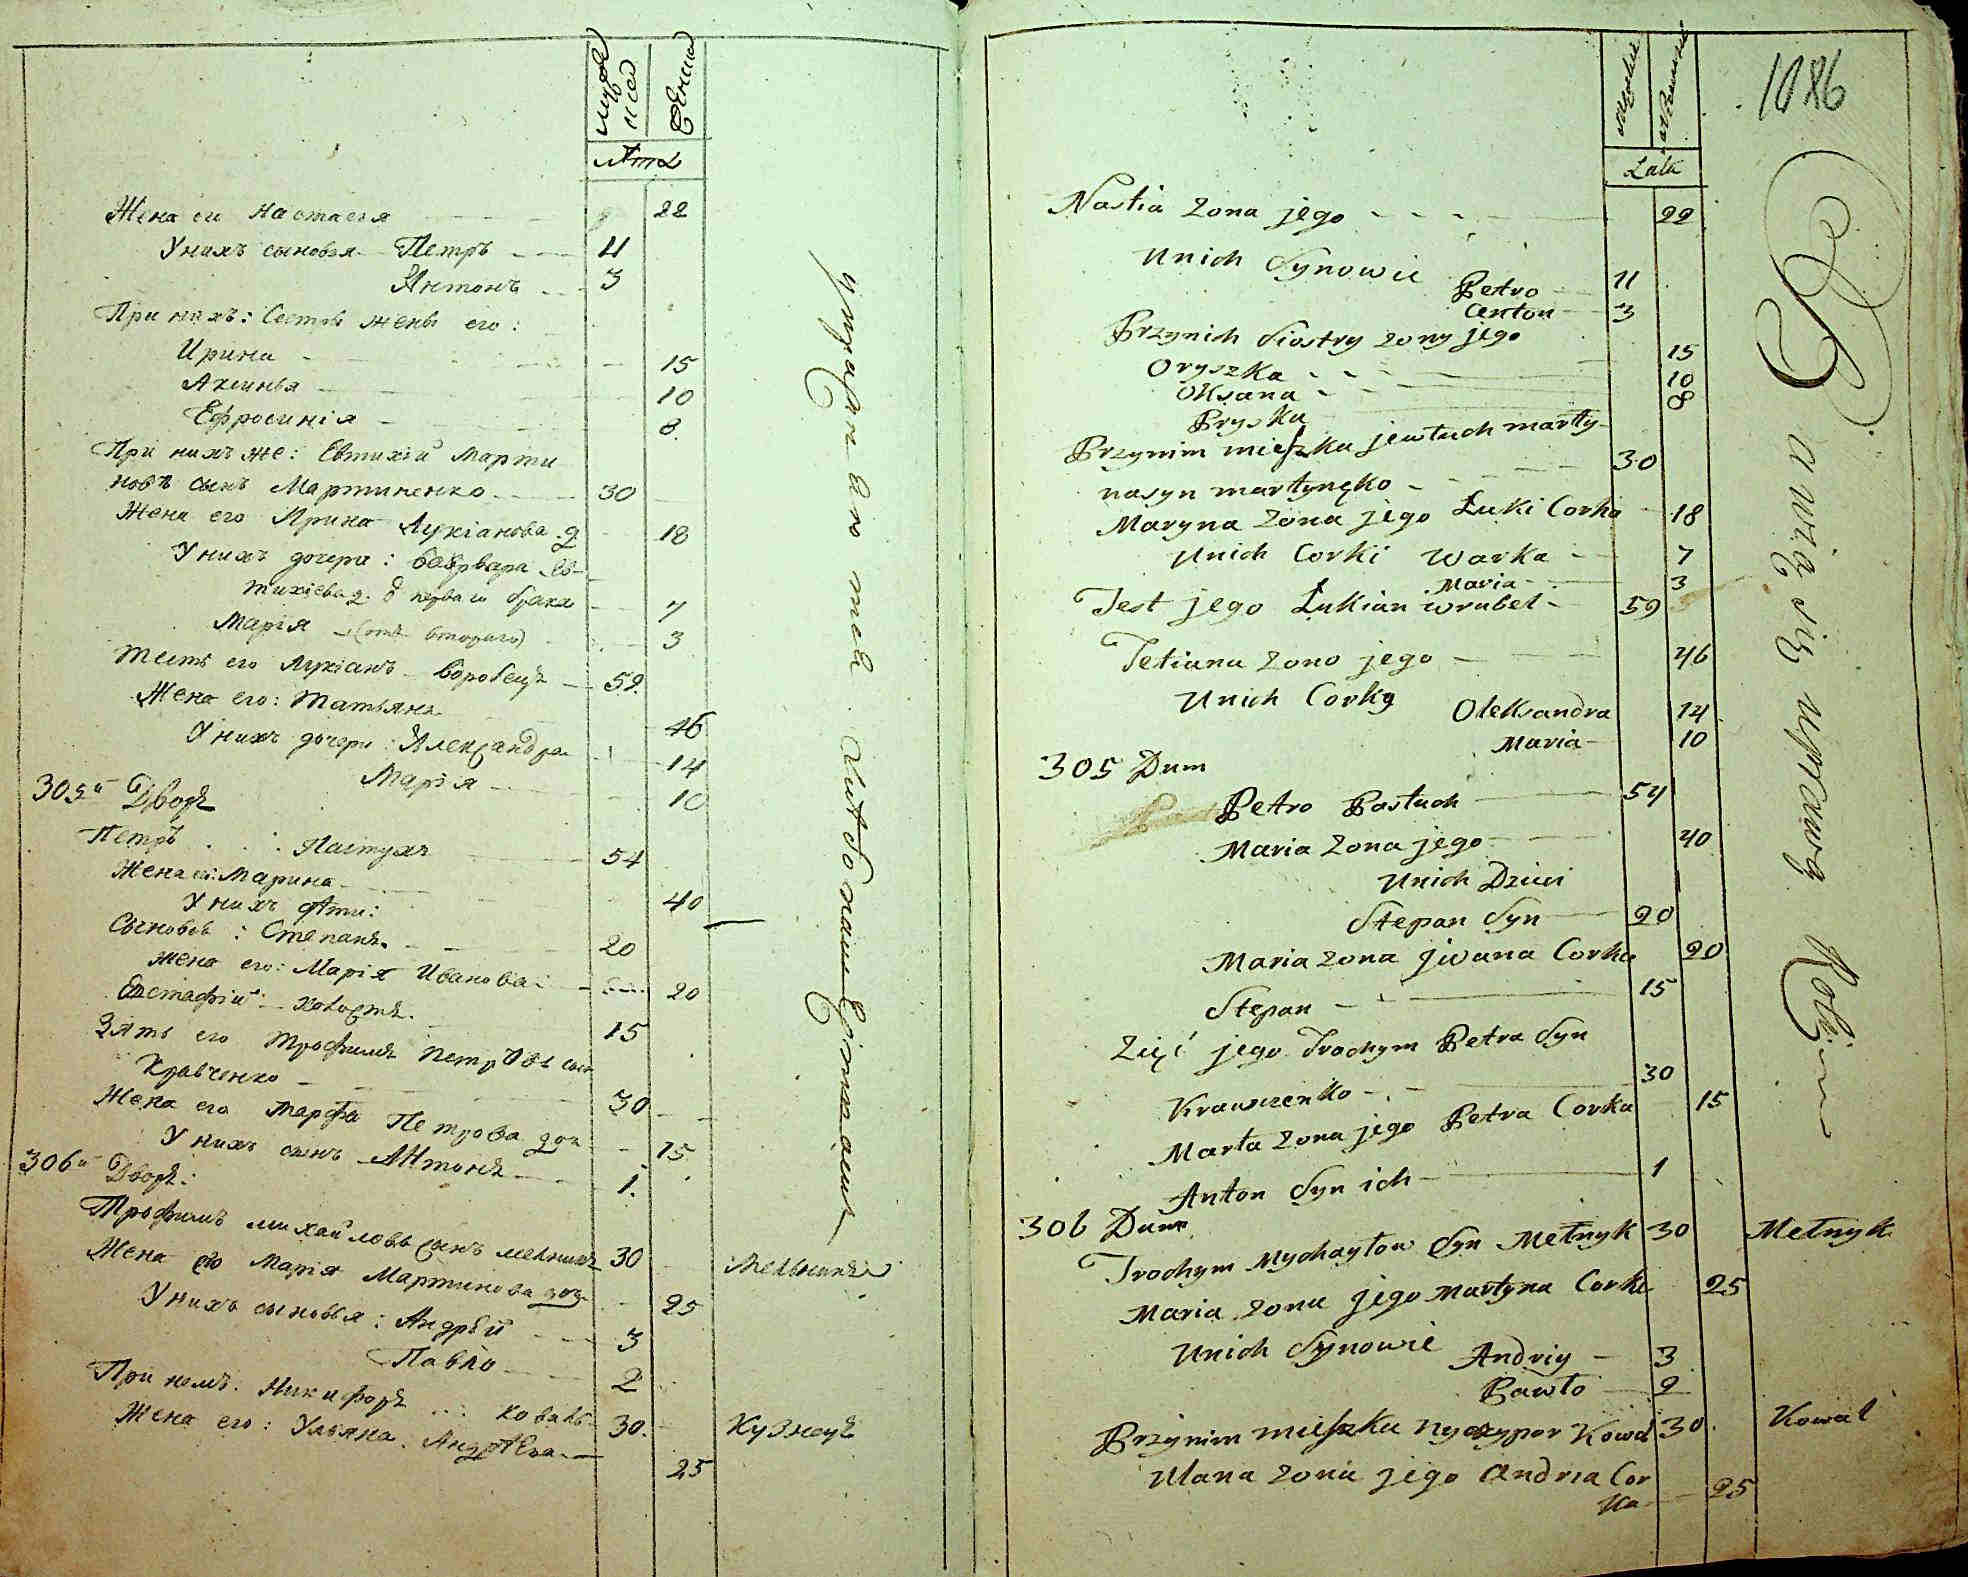 мужеска
женска
лѣта
Жена его Настасія 22
У нихъ сыновья Петръ 4
Антонъ 3
При нихъ: Сестры жены его:
Ирина 15
Аксинья 10
Ефросинія 8.
При нихъ же: Евтихій Марти
новъ сынъ Мартиненко 30
Жена его Ирина Лукіанова д. 18
У нихъ дочери: Варвара Ев-
тихіева д. перваго брака 7
Марія (отъ втораго) 3
Тесть его Лукіанъ Воробецъ 59.
Жена его: Татьяна 46
У нихъ дочери: Александра 14
Марія 10
305й Дворъ
Петръ Пастухъ 54
Жена его: Марина 40
У нихъ дѣти:
Сыновья: Степанъ 20
жена его: Марія Иванова 20
Евстафій холостъ. 15
Зять его Трофимъ Петровъ сынъ
Кравченко 30
Жена его Марфа Петрова доч. 15
У нихъ сынъ Антонъ 1.
306й Дворъ:
Трофимъ Михайловъ сынъ Мельникъ 30 Мельникъ
Жена его Марія Мартинова доч. 25
У нихъ сыновья: Андрѣй 3
Павло 2
При немъ: Никифоръ Коваль 30. Кузнецъ
Жена его: Ульяна Андрѣева 25
1086
Męzkie
Lata
Nastia Zona jego 22
Unich Synowie Petro 11
Anton 3
Przynich Siostry zony jego
Oryszka 15
Oksana 10
Pryska 8
Przynim mieszka jewtuch marty-
nasyn martynęko 30
Maryna Zona jego Łuki Corka 18
Unich Corki Warka 7
Maria 3
Test jego Łukian wrubel 59
Tetiana Zono jego 46
Unich Corky Oleksandra 14
Maria 10
305 Dum
Petro Pastuch 54
Maria Zona jego 40
Unich Dzieci
Stepan Syn 20
Maria zona jwana Corka 20
Stepan 15
Zięć jego Trochym Petra Syn
Krawczenko 30
Marta Zona jego Petra Corka 15
Anton Syn ich 1
306 Dum
Trochym Mychayłow Syn Mełnyk 30 Mełnyk
Maria zona jego Martyna Corka 25
Unich Synowie Andriy 3
Pawło 2
Przynim mieszka Nyczypor Kowal 30 Kowal
Ulana zona jego Andria Cor
ka 25